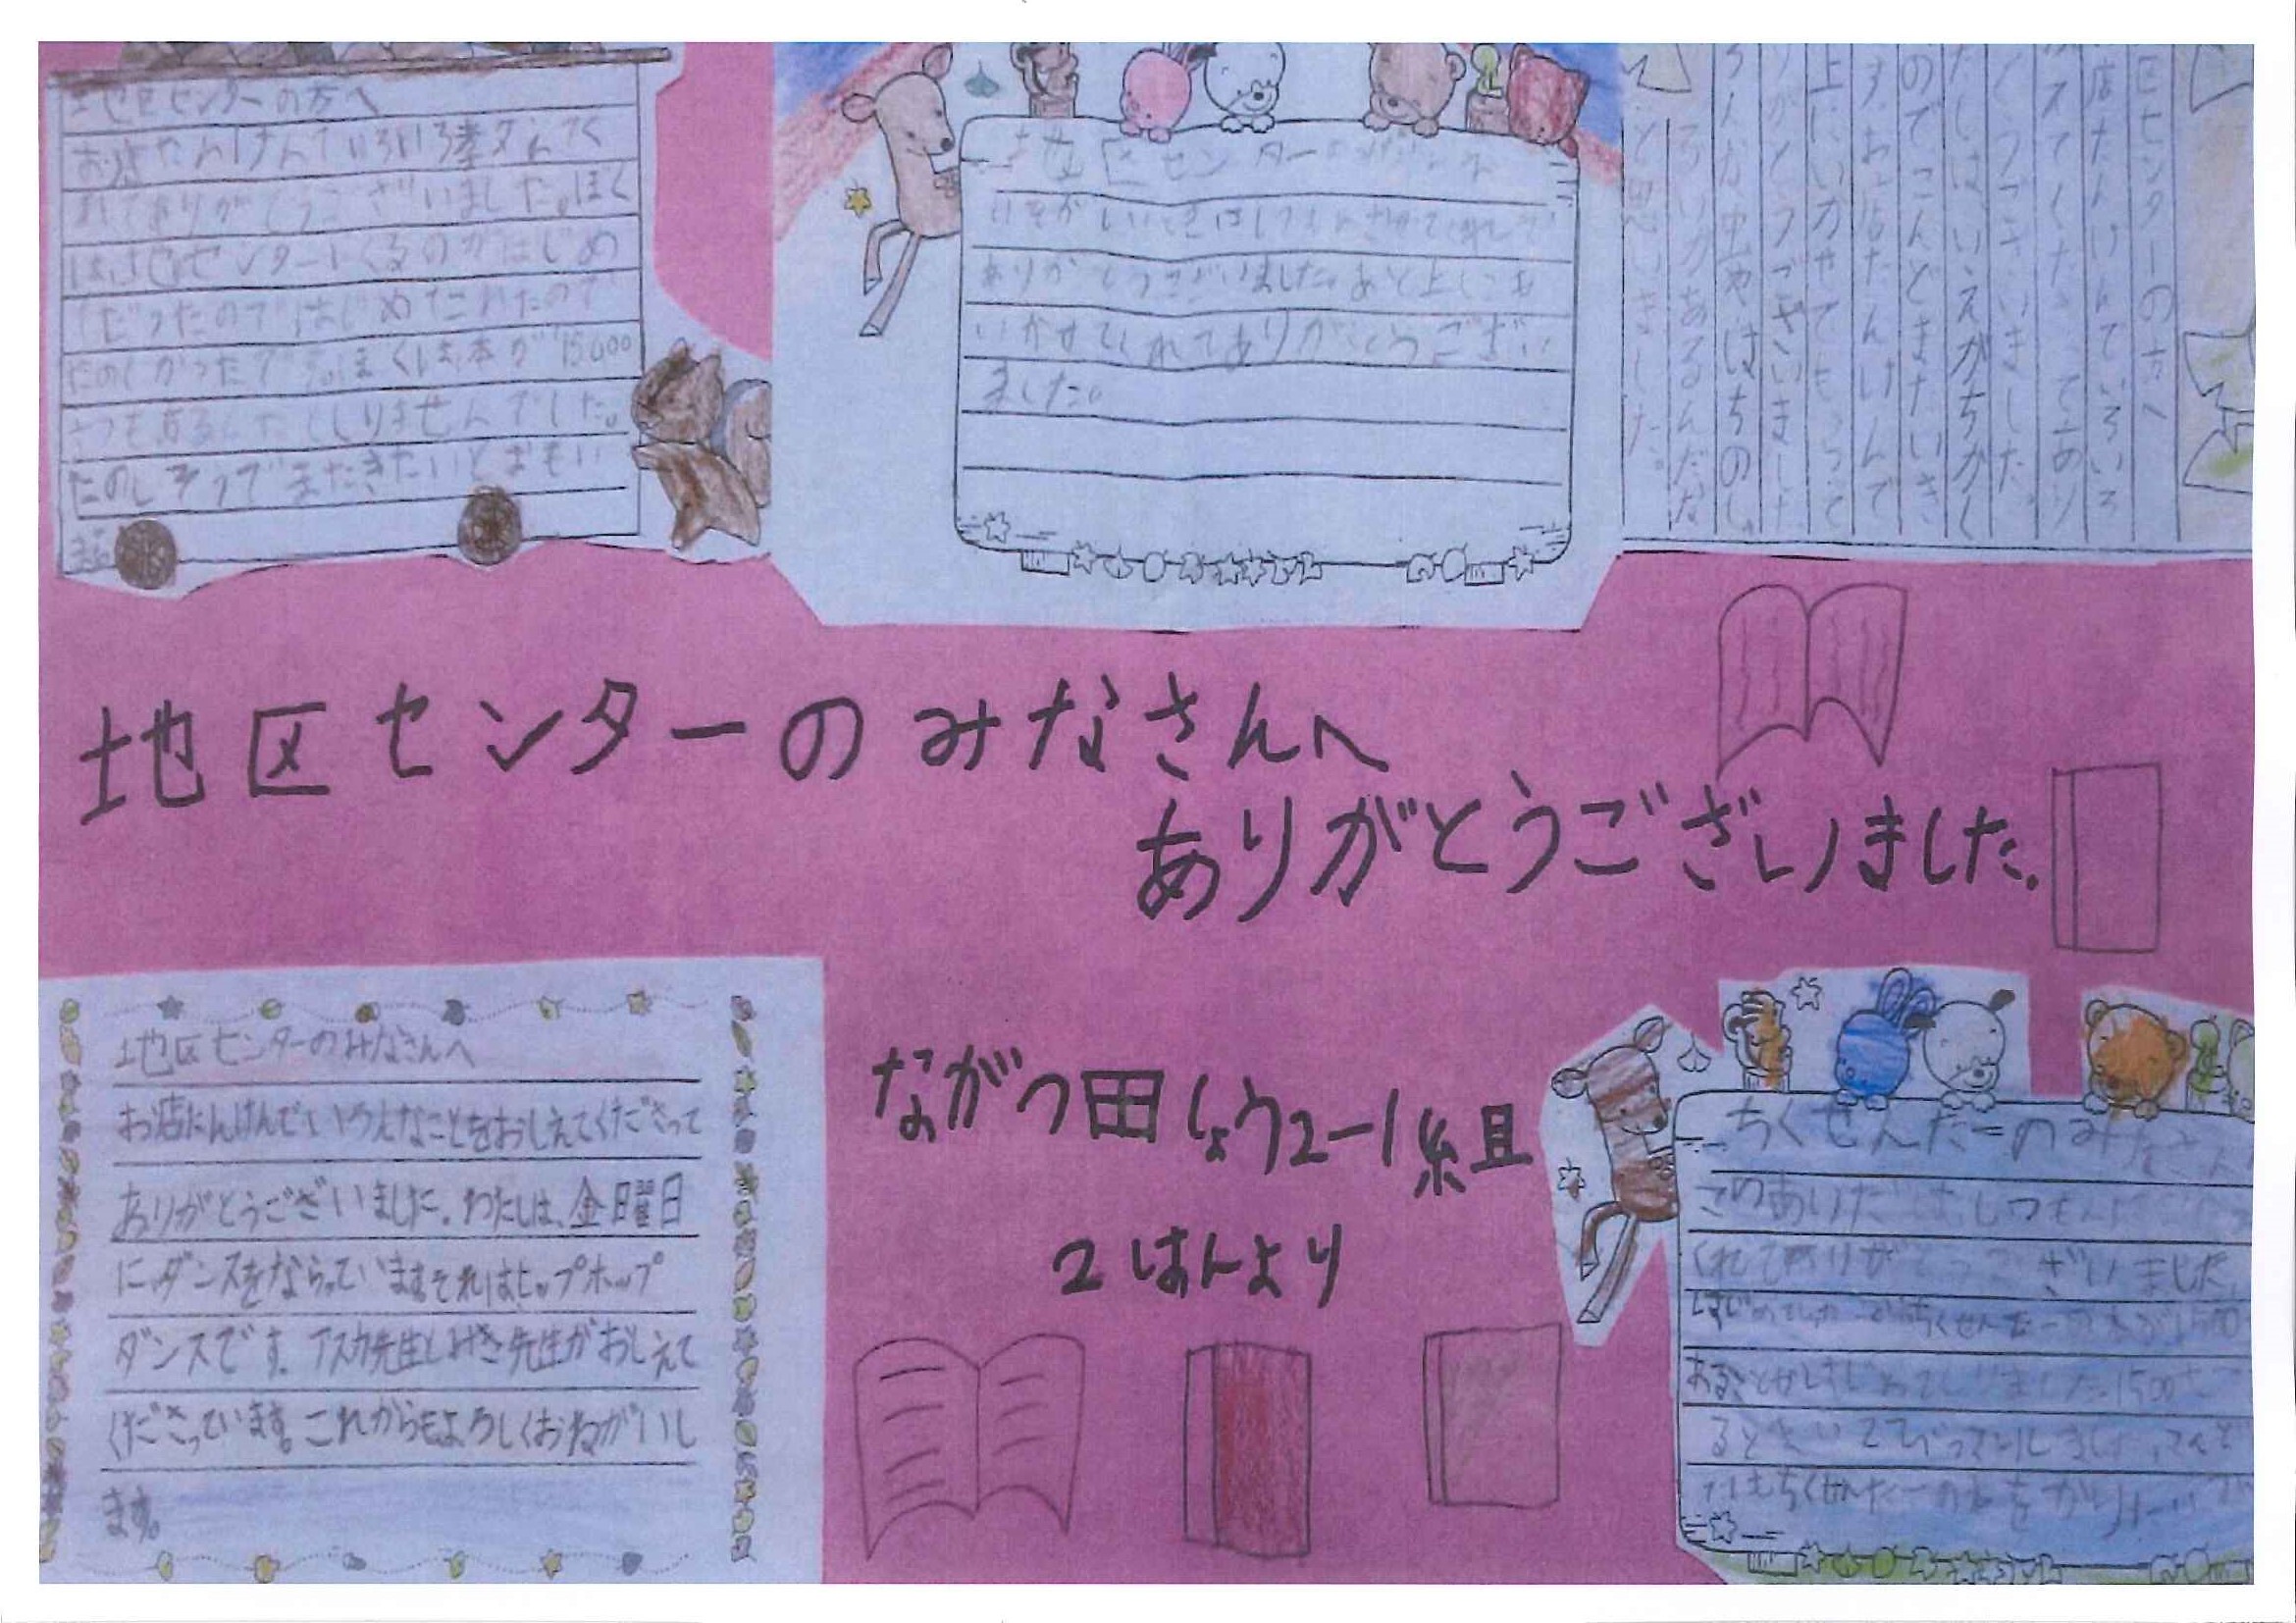 地区センターの方へ
お店たんけんでいろいろ教えてく
れてありがとうございました。ぼく
は地区センターにくるのがはじめ
てだったのではじめてこれたので
たのしかったです。ぼくは本が15000
さつもあるんだとしりませんでした。
たのしそうでまたきたいとおもい
ます
地区センターのみなさんへ
いそがしいときにしつもんさせてくれて
ありがとうございました。あと上にも
いかせてくれてありがとうござい
ました。
区センターの方へ
店たんけんでいろいろ
えてくださってあり
とうございました。
たしは、いえがちかく
のでこんどまたいき
す。お店たんけんで
上にいかせてもらって
りがとうございました
ろんな本やはちのし
ろいがあるんだな
と思いました。
地区センターのみなさんへ
ありがとうございました。
地区センターのみなさんへ
お店たんけんで、いろんなことをおしえてくださって
ありがとうございました。わたしは、金曜日
に、ダンスをならっていますそれはヒップホップ
ダンスです。アスカ先生としげき先生がおしえて
くださっています。これからもよろしくおねがいし
ます。
ながつ田しょう2-1組
2はんより
ちくせんたーのみなさん
このあいだは、しつもん
くれてありがとうございました。
はじめてしったちくせんたーの本が1500
あることがはじめてしりました。1500さつ
るときいてびっくりしました。こんど
ちくせんたーの本をかりにいいで